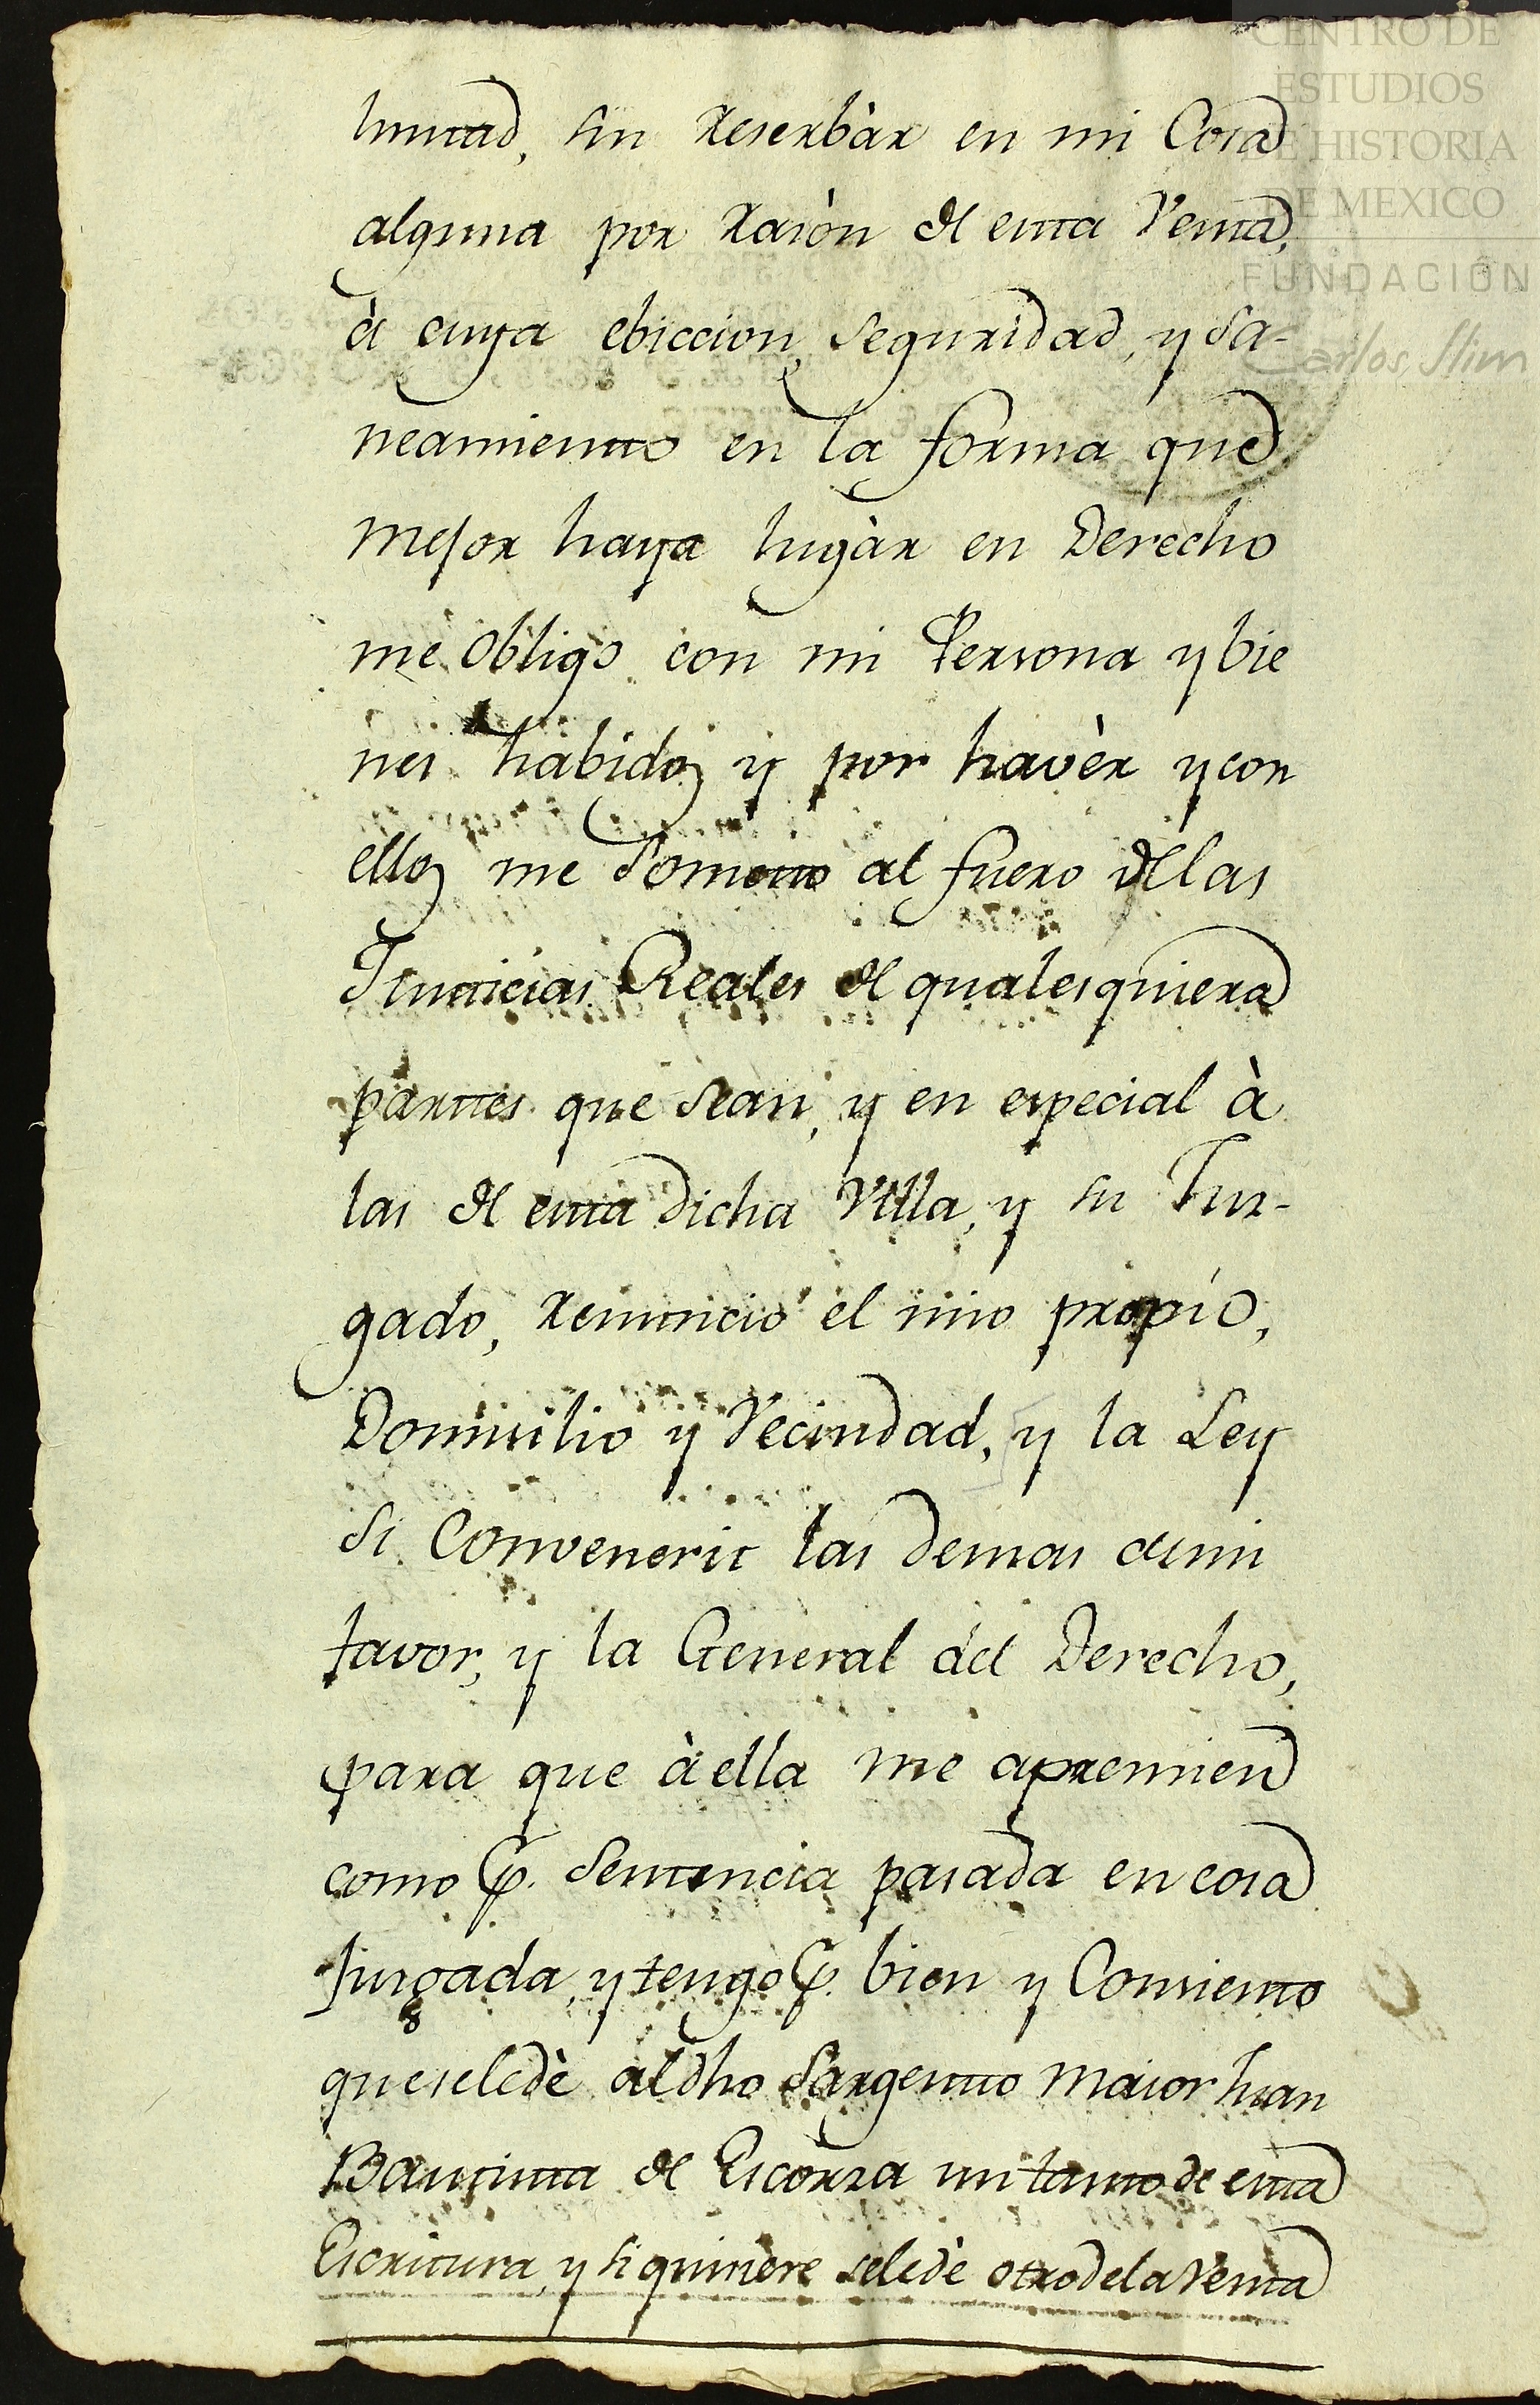 CENTRO DE
ESTUDIOS
DE HISTORIA
DE MEXICO
FUNDACIÓN
Carlos Slim
luntad, sin Reserbàr en mi Cosa
alguna por Rasòn de esta Venta,
à cuya ebiccion, seguridad, y sa-
neamiento en la forma que
mejor haya lugàr en Derecho
me obligo con mi Persona y bie
nes habidos y por havèr y con
ellos me Someto al fuero de las
Justicias Reales de qualesquiera
partes que sean, y en especial à
las de esta dicha Villa, y su Juz-
gado, Renuncio el mio propio,
Domisilio y Vecindad, y la Ley
si Convenerit las demas de mi
favor, y la General del Derecho,
para que à ella me apremien
como p. Sentencia pasada en cosa
Jusgada, y tengo p. bien y Consiento
que sele dè al dho Sargento Maior Juan
Bautista de Escorza un tanto de esta
Escritura, y si quisiere sele dè otro de la Venta